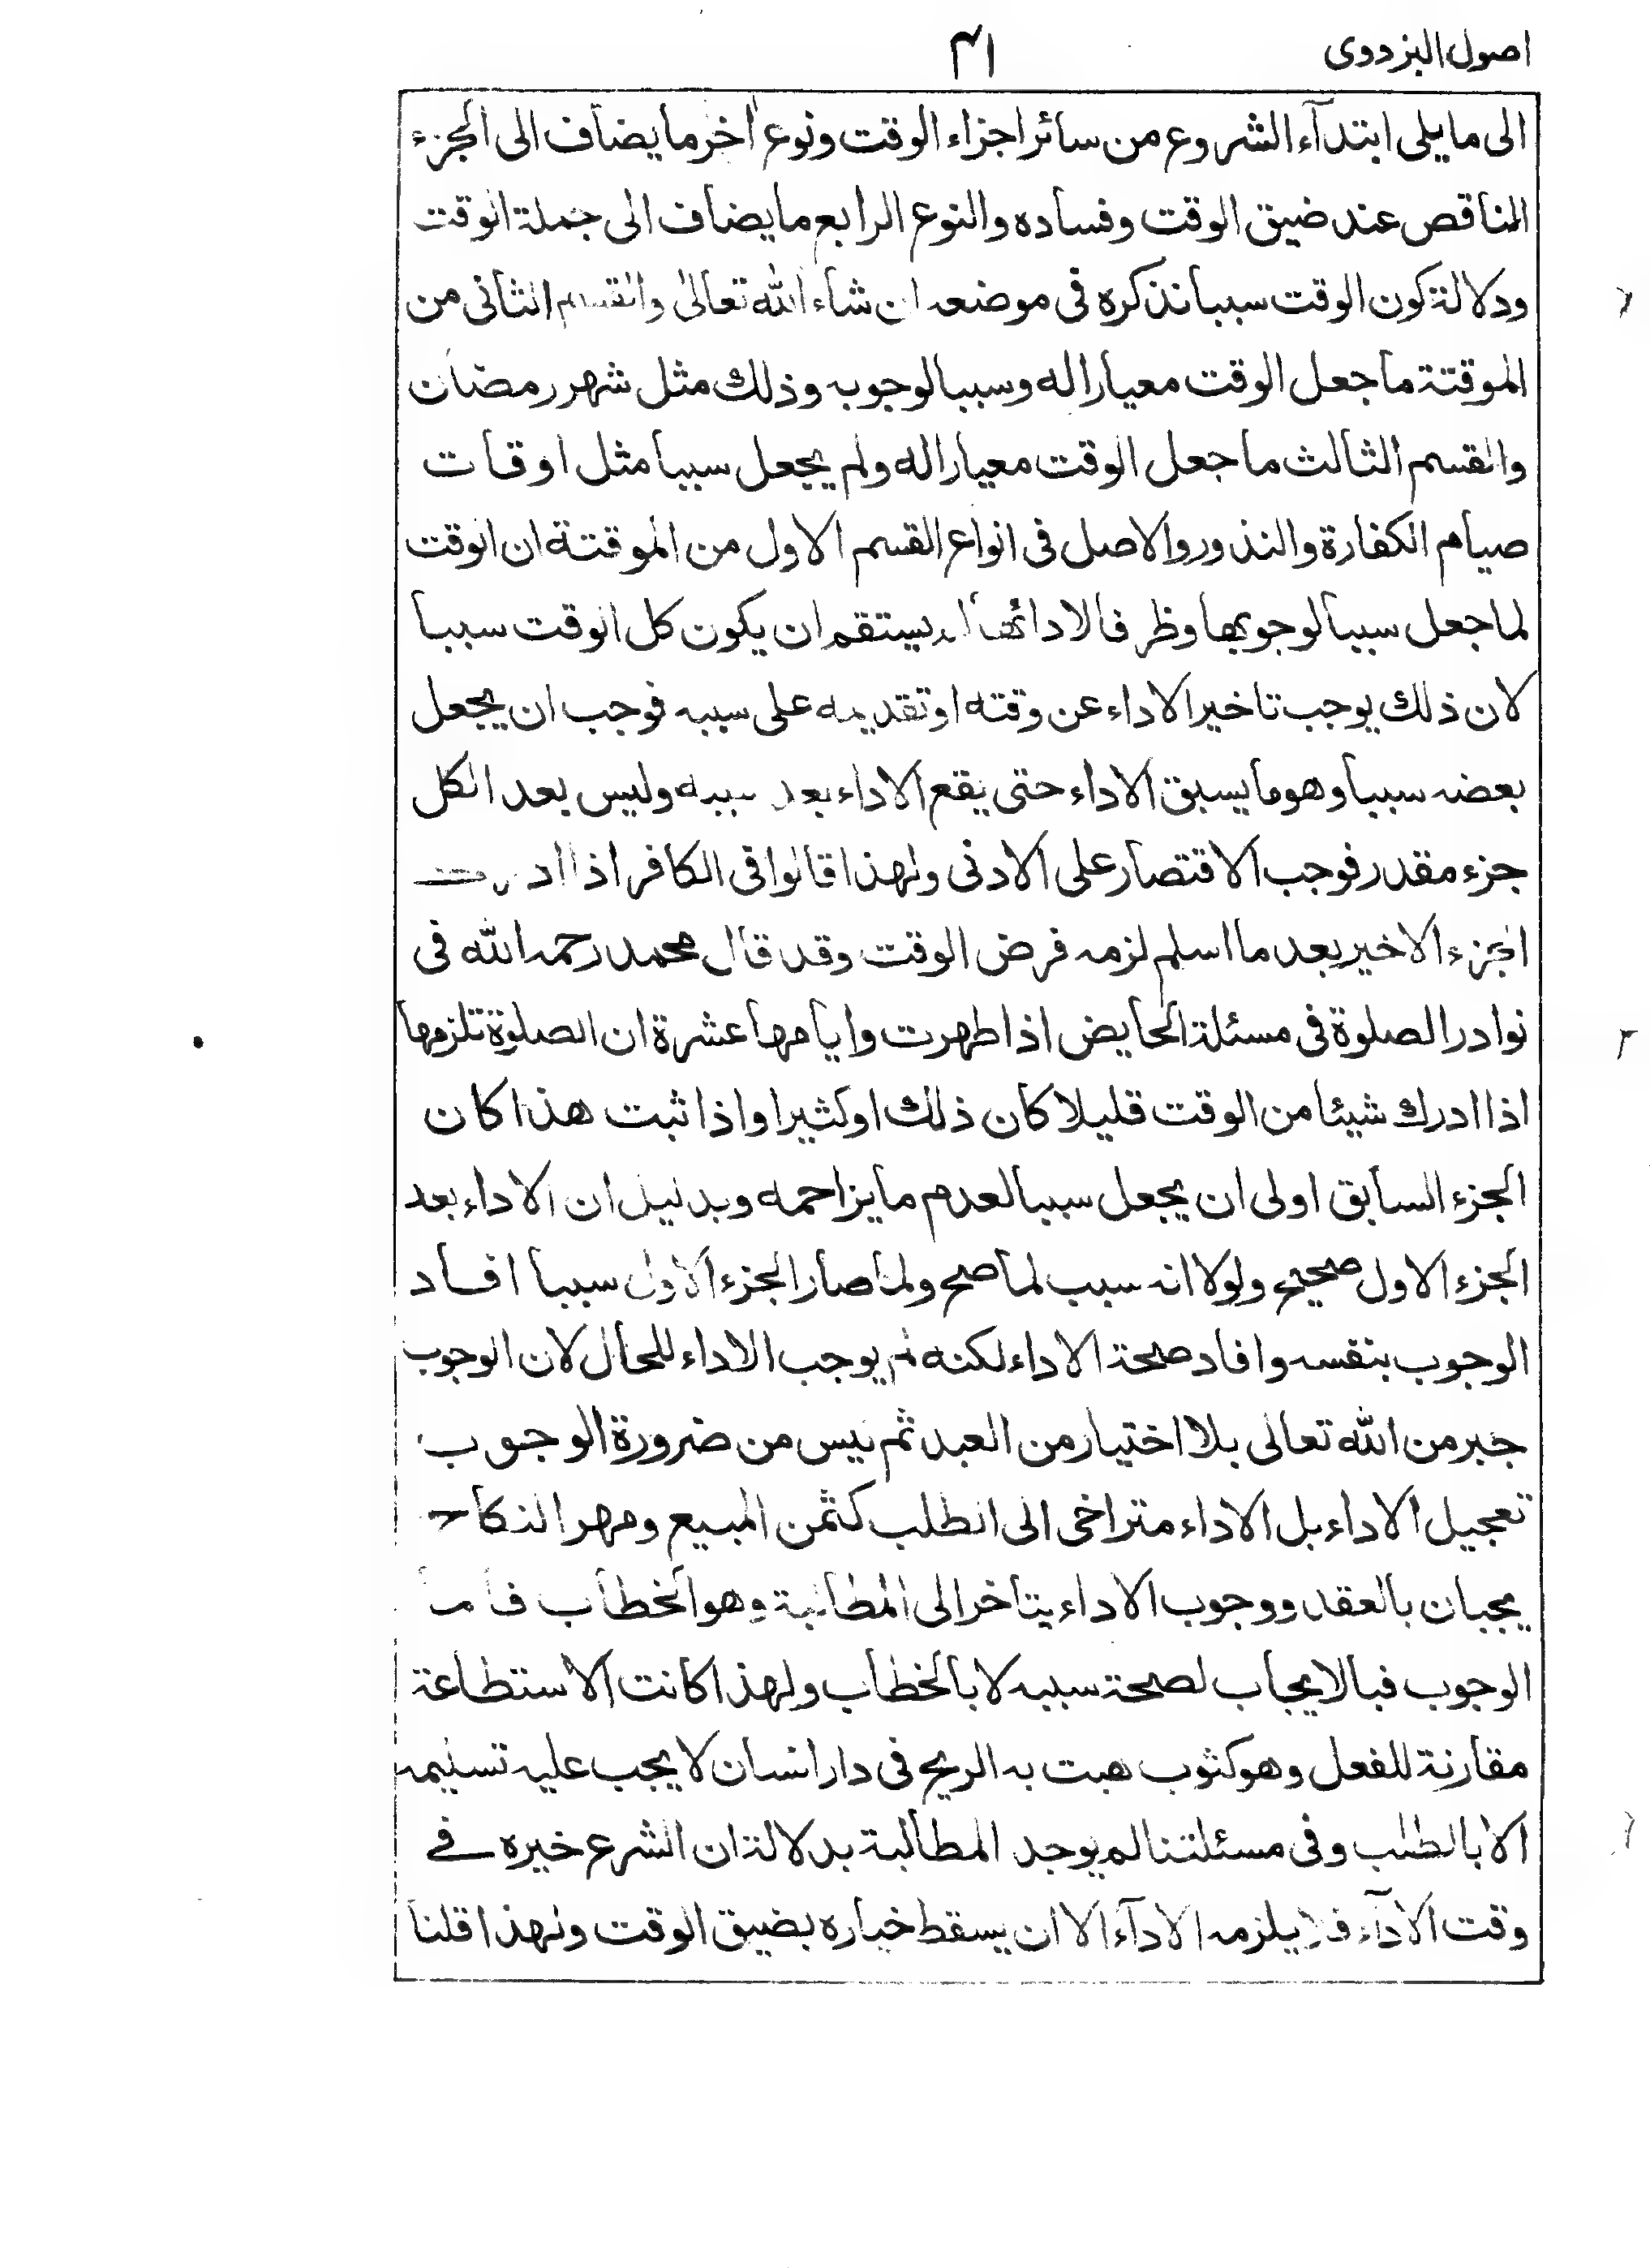 اصول البزدوى
٤١
الى ما يلى ابتدآء الشروع من سائر اجزاء الوقت ونوع اٰخر ما يضاف الى الجزء
الناقص عند ضيق الوقت وفساده والنوع الرابع ما يضاف الى جملة الوقت
ودلالة كون الوقت سببا نذكره فى موضعه ان شاء الله تعالىٰ والقسم الثانى من
الموقتة ما جعل الوقت معيارا له وسببا لوجوبه وذلك مثل شهر رمضان
والقسم الثالث ما جعل الوقت معيارا له ولم يجعل سببا مثل اوقات
صيام الكفارة والنذور والاصل فى انواع القسم الاول من الموقتة ان الوقت
لما جعل سببا لوجوبها وظرفا لادائها لم يستقم ان يكون كل الوقت سببا
لان ذلك يوجب تاخير الاداء عن وقته او تقديمه على سببه فوجب ان يجعل
بعضه سببا وهو ما يسبق الاداء حتى يقع الاداء بعد سببه وليس بعد الكل
جزء مقدر فوجب الاقتصار على الادنى ولهذا قالوا فى الكافر اذا ادرك
الجزء الاخير بعد ما اسلم لزمه فرض الوقت وقد قال محمد رحمه الله فى
نوادر الصلوة فى مسئلة الحايض اذا طهرت وايامها عشرة ان الصلوة تلزمها
اذا ادرك شيئا من الوقت قليلا كان ذلك او كثيرا واذا ثبت هذا كان
الجزء السابق اولى ان يجعل سببا لعدم ما يزاحمه وبدليل ان الاداء بعد
الجزء الاول صحيح ولولا انه سبب لما صح ولما صار الجزء الاول سببا افاد
الوجوب بنفسه وافاد صحة الاداء لكنه لم يوجب الاداء للحال لان الوجوب
جبر من الله تعالى بلا اختيار من العبد ثم ليس من ضرورة الوجوب
تعجيل الاداء بل الاداء متراخى الى الطلب كثمن المبيع ومهر النكاح
يجبان بالعقد ووجوب الاداء يتاخر الى المطالبة وهو الخطاب فاما
الوجوب فبالايجاب لصحة سببه لا بالخطاب ولهذا كانت الاستطاعة
مقارنة للفعل وهو كثوب هبت به الريح فى دار انسان لا يجب عليه تسليمه
الا بالطلب وفى مسئلتنا لم يوجد المطالبة بدلالة ان الشرع خيره فے
وقت الادآء فلا يلزمه الادآء الا ان يسقط خياره بضيق الوقت ولهذا قلنا